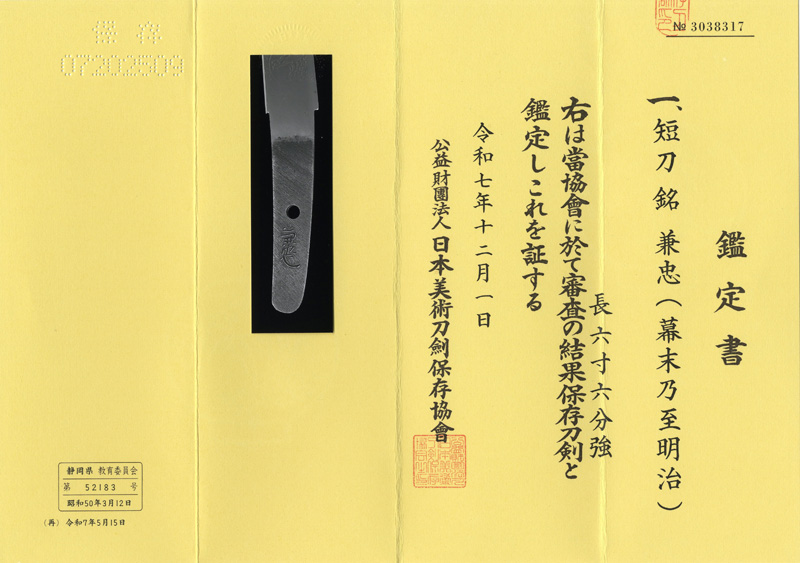 № 3038317
鑑定書
一、短刀 銘 兼忠(幕末乃至明治)
長六寸六分強
右は當協會に於て審査の結果保存刀剣と
鑑定しこれを証する
令和七年十二月一日
公益財團法人 日本美術刀劍保存協會
保存
07202509
静岡県 教育委員会
第 52183 号
昭和50年3月12日
(再) 令和7年5月15日